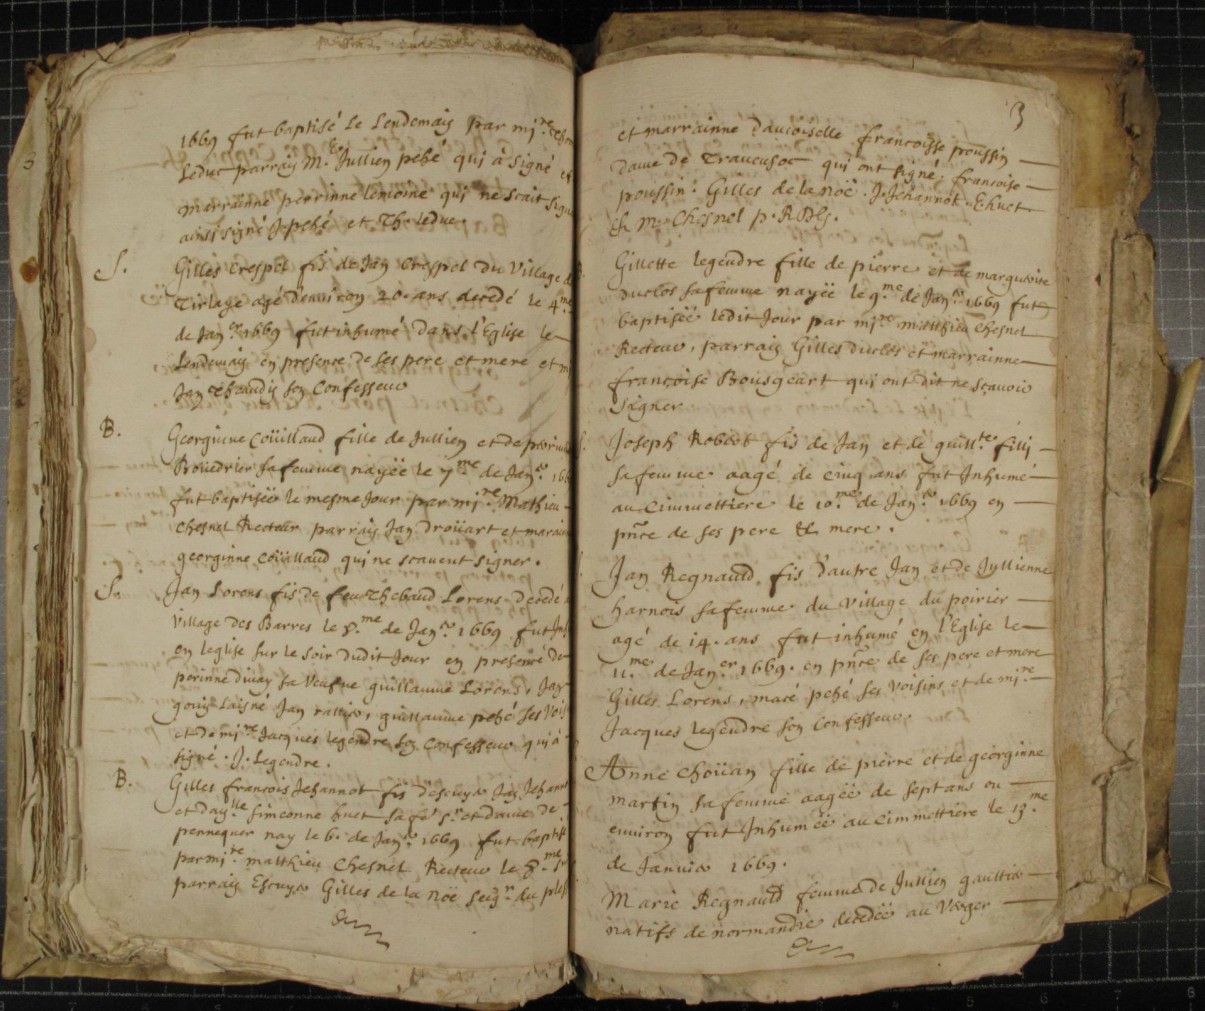 1669 fut baptisé le Lendemain par mi.re
Leduc parrain M.e Jullien pebé qui à signé et
marrainne perrinne Lemoine qui ne scait
ainsi signé J pebé et Th leduc.
S. Gilles Crespel fis de Jan Crespel du village
Tirlage agé d'environ 20. ans decedé le 4.me
de Jan.er 1669 fut inhumé dans l'Eglise le
Lendemain en presence de ses pere et mere et
Jan Thebaudin son Confesseur
B. Georginne Coüillaud fille de Jullien et de
Bouedrier sa femme nayëe le 7.me de Jan.er
fut baptiseë le mesme Jour par mi.re Mathieu
Chesnel Recteur parrain Jan Droüart et
georginne Coüillaud qui ne scavent signer.
S. Jan Lorens fis de feu Thebaud Lorens decedé
village des Barres le 8.me de Jan.er 1669 fut
en leglise sur le soir dudit Jour en presence de
perinne sa veufve guillaume Lorens, Jan
Laisne Jan guillaume pebé ses
et de mi.re Jacques legendre son Confesseur qui à
signé. J. Legendre.
B. Gilles francois Jehannot fis d'escuyer Jan
et dam.lle simeonne huet sa fe s.r et dame de
pennequer nay le 6. de Jan.er 1669 fut
par mi.re matthieu Chesnel Recteur le 8.me
parrain Escuyer Gilles de la Noë seig.r du
3
et marrainne damoiselle francoisse poussin
dame de qui ont signé: francoise
poussin. Gilles de la noë. J. Jehannot. Ehuet
& M. Chesnel p. R
Gillette legendre fille de pierre et de marguerite
duclos sa femme nayëe le 9.me de Jan.er 1669 fut
baptiseë ledit Jour par mi.re matthieu Chesnel
Recteur, parrain Gilles duclos et marrainne
francoise qui ont dit ne sçavoir
signer
Joseph Robert fis de Jan et de guill.te filli
sa femme aagé de cinq ans fut Inhumé
au Cimmettiere le 10.me de Jan.er 1669 en
pnce de ses pere & mere.
Jan Regnauld fis d'autre Jan et de Jullienne
harnois sa femme du village du poirier
agé de 14. ans fut inhumé en l'Eglise le
11.me de Jan.er 1669. en pnce de ses pere et mere
Gilles Lorens, macé pebé ses voisins et de mi.re
Jacques legendre son Confesseur
Anne Choüan fille de pierre et de georginne
martin sa femme aageë de sept ans ou
environ fut Inhumëe au cimmettiere le 13.me
de Janvier 1669.
Marie Regnauld femme de Jullien gaultier
natifs de normandie decedëe au Verger